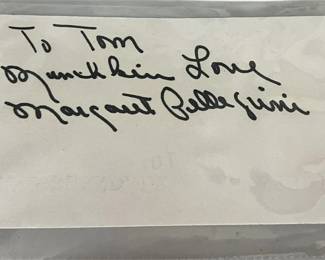 To Tom
Munchkin Love
Margaret Pellegrini